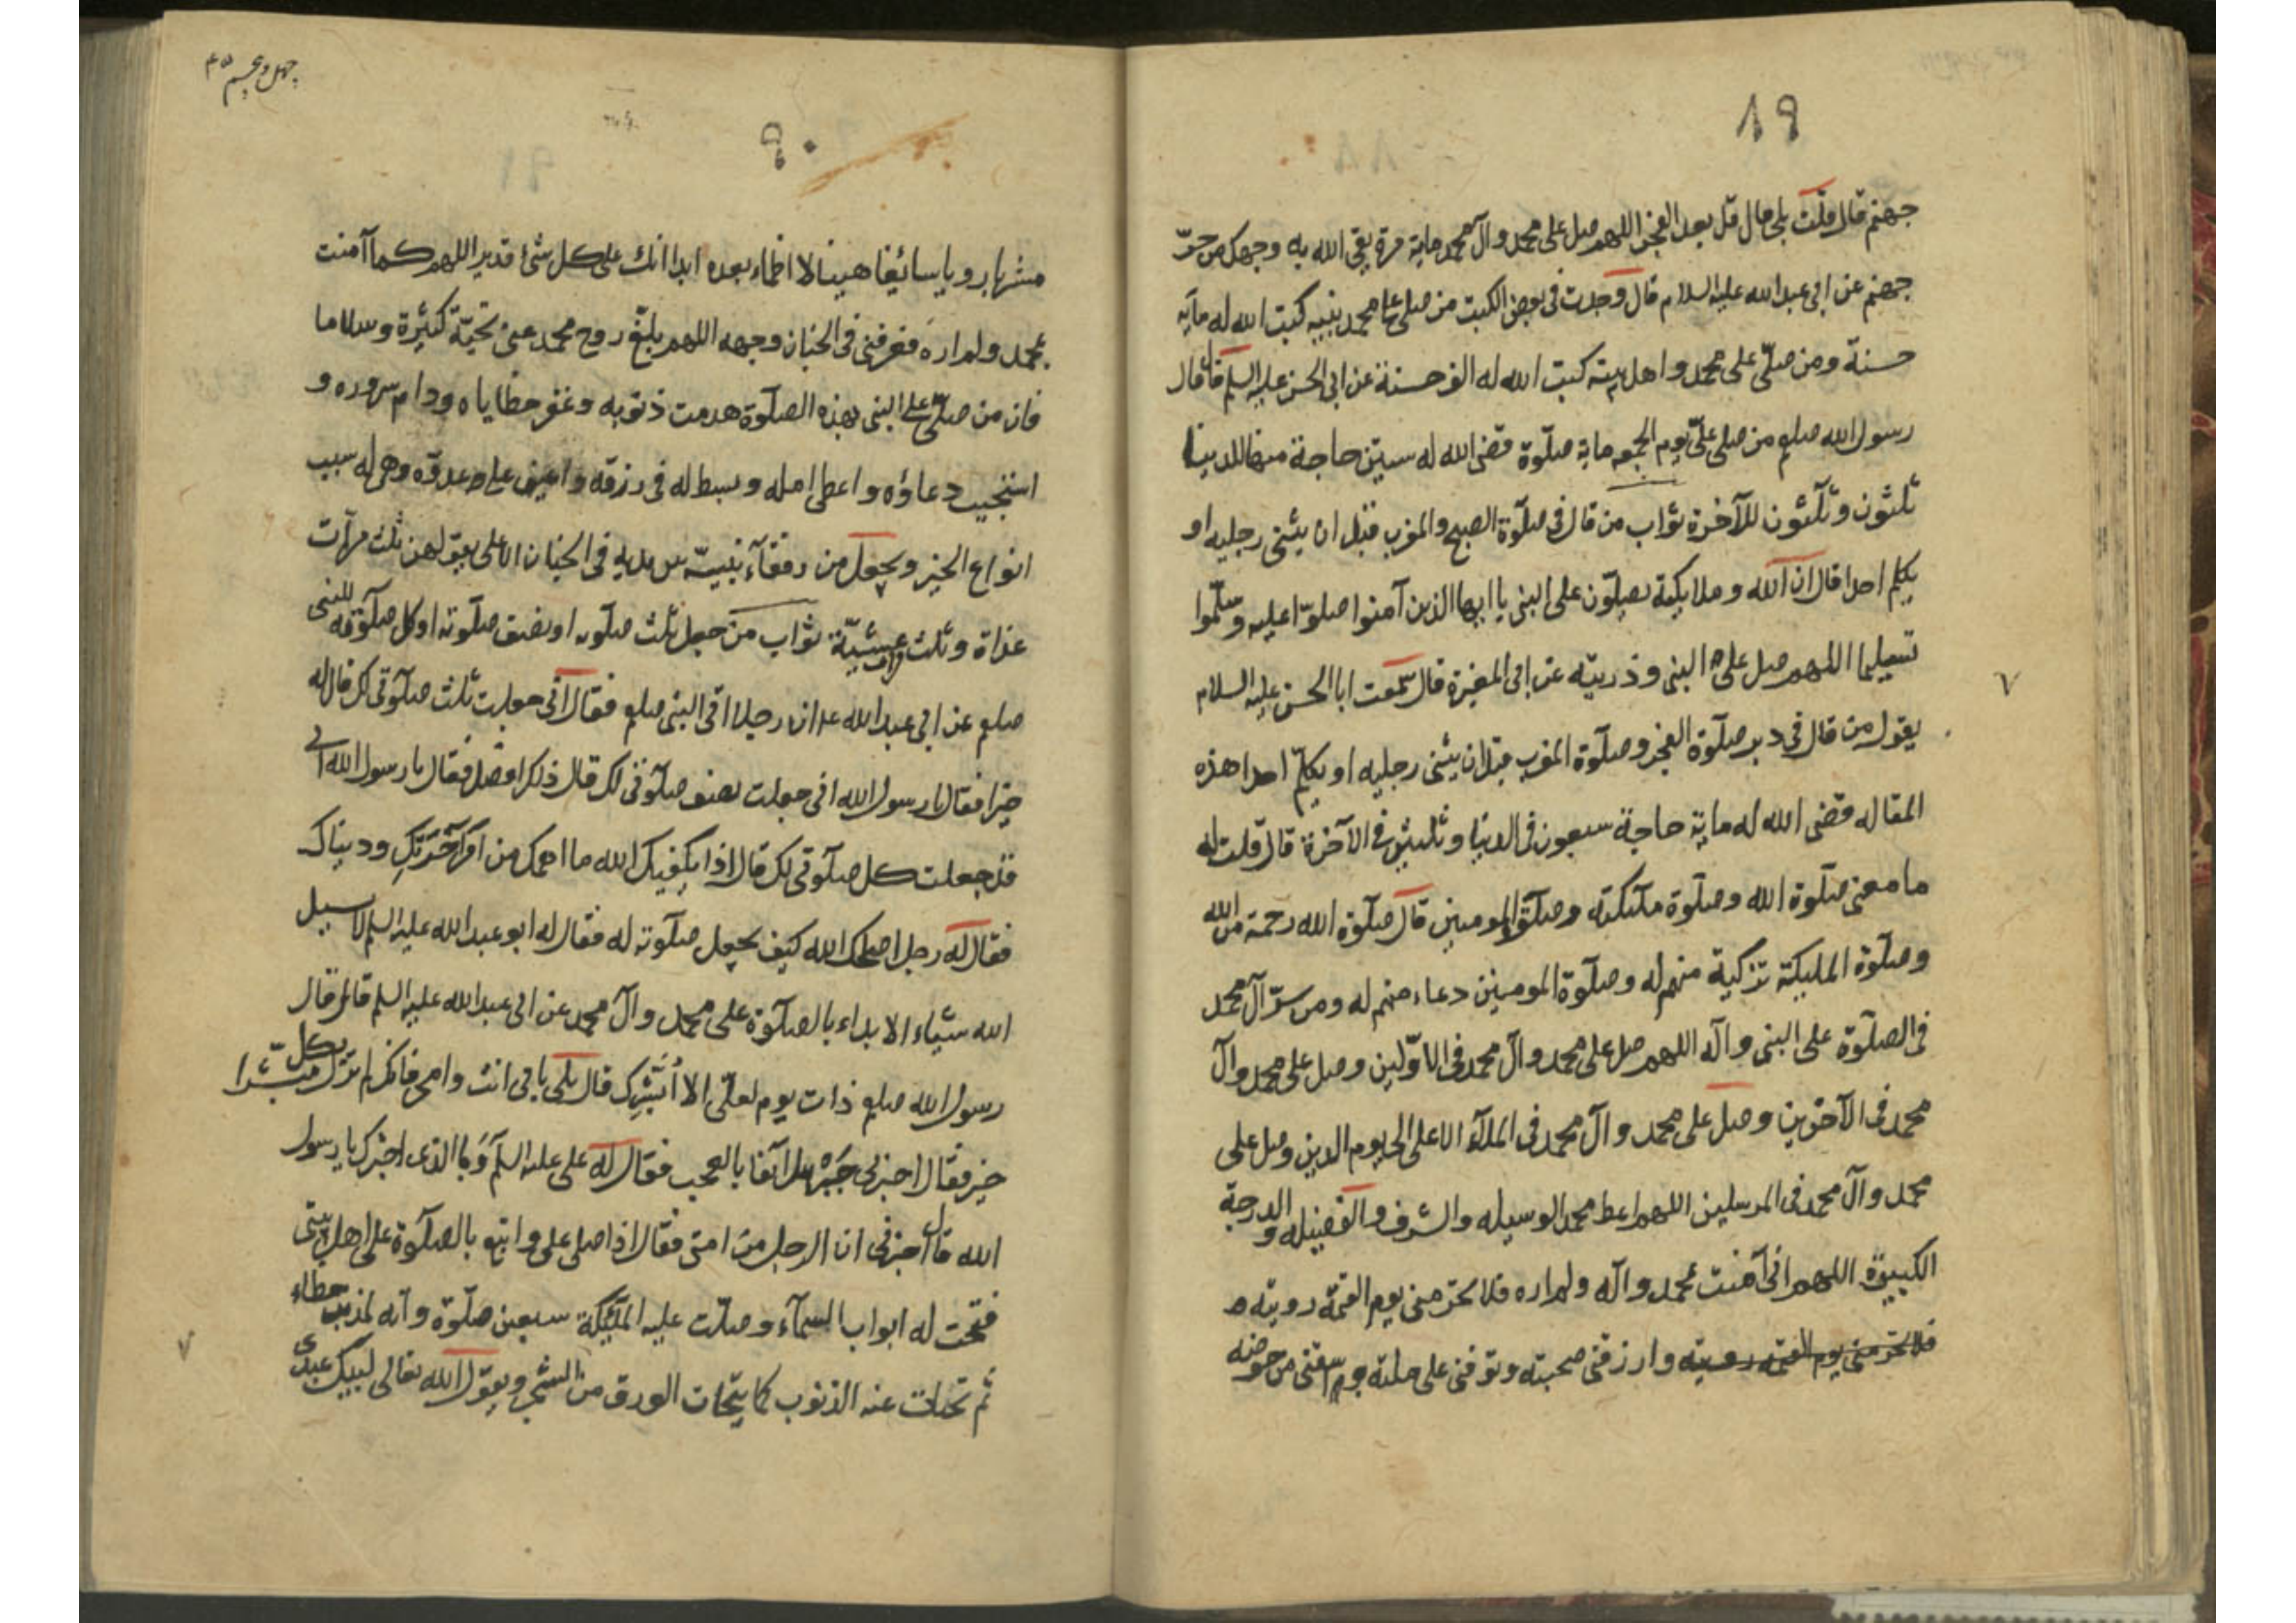 ٨٩
جهنم قال قلت بلى قال قل بعد الفجر اللهم صل على محمد وآل محمد ماية مرة يقى الله به وجهك من حرّ
جهنم عن ابى عبدالله عليه السلام قال وجدت فى بعض الكتب من صلى على محمد نبيه كتبت الله له مايه
حسنة ومن صلّى على محمد واهل بيته كتب الله له الف حسنة عن ابى الحسن عليه السلم قال قال
رسول الله صلعم من صلى علىّ يوم الجمعه ماية صلوة قضى الله له ستين حاجة منها للدنيا
ثلثون وثلثون للآخرة ثواب من قال فى صلوة الصبح والمغرب قبل ان يثنى رجليه او
يكلم احدا قال ان الله وملايكته يصلّون على النبى يا ايها الذين آمنوا صلوّا عليه وسلّموا
تسليما اللهم صل على النبى وذريته عن ابى المغيرة قال سمعت ابا الحسن عليه السلام
يقول من قال فى دبر صلوة الفجر وصلوة المغرب قبل ان يثنى رجليه او يكلم احدا هذه
المقاله قضى الله له ماية حاجة سبعون فى الدنيا وثلثين فى الآخرة قال قلت له
ما معنى صلوة الله وصلوة ملئكته وصلوة المومنين قال صلوة الله رحمة من الله
وصلوة المليكة تزكية منهم له وصلوة المومنين دعاء منهم له ومن سرّ آل محمد
فى الصلوة على النبى وآله اللهم صل على محمد وآل محمد فى الاوّلين وصل على محمد وآل
محمد فى الآخرين وصل على محمد وآل محمد فى الملآء الاعلى الى يوم الدين وصل على
محمد وآل محمد فى المرسلين اللهم اعط محمد الوسيله والشرف والفضيله والدرجة
الكبيرة اللهم انى آمنت بمحمد وآله ولم اره فلا تحرمنى يوم القيمة رويته
فلا تحرمنى يوم القيمة رويته وارزقنى صحبته وتوفنى على ملته واسقنى من حوضه
چهل و پنجم ۴۵
٩٠
مشربا رويا سائغا هنيئا لا اظماء بعده ابدا انك على كل شئ قدير اللهم كما آمنت
بمحمد ولم اره فعرفنى فى الجنان وجهه اللهم بلّغ روح محمد عنى تحيّة كثيرة وسلاما
فان من صلّى على النبى بهذه الصلوة هدمت ذنوبه وغفر خطاياه ودام سروره و
استجيب دعاؤه واعطى امله وبسط له فى رزقه واعين على عدوّه وهى له سبب
انواع الخير ويجعل من رفقآء نبيّه بين يديه فى الجنان الاعلى يقولهن ثلث مرآت
غداة وثلث عشيّة ثواب من جعل ثلث صلوته او نصف صلوته او كل صلوته للنبى
صلعم عن ابى عبدالله ع ان رجلا اتى النبى صلعم فقال انى جعلت ثلث صلوتى لك قال له
خيرا فقال يا رسول الله انى جعلت نصف صلوتى لك قال ذلك افضل فقال يا رسول الله انى
قد جعلت كل صلوتى لك قال اذا يكفيك الله ما اهمك من امر آخرتك ودنياك
فقال له رجل اصلحك الله كيف يجعل صلوته له فقال له ابو عبدالله عليه السلم لا يسيل
الله شيئاء الا بداء بالصلوة على محمد وآل محمد عن ابى عبدالله عليه السلم قال قال
رسول الله صلعم ذات يوم لعلّى الا أُبَشِّرك قال بلى بابى انت وامى فانك لم تزل مبشّرا بكل
خير فقال اخبرنى جبرئيل آنفا بالعجب فقال له على عليه السلم وما الذى اخبرك يا رسول
الله قال اخبرنى ان الرجل من امتى فقال اذا صلى على واتبع بالصلوة على اهل بيتى
فتحت له ابواب السمآء وصلّت عليه المليكة سبعين صلوة وانه لمذنب خطاء
ثم تحات عنه الذنوب كما يتحات الورق من الشجر ويقول الله تعالى لبيك عبدى